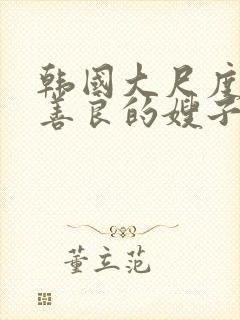 韩国大尺度
善良的嫂子
董立范